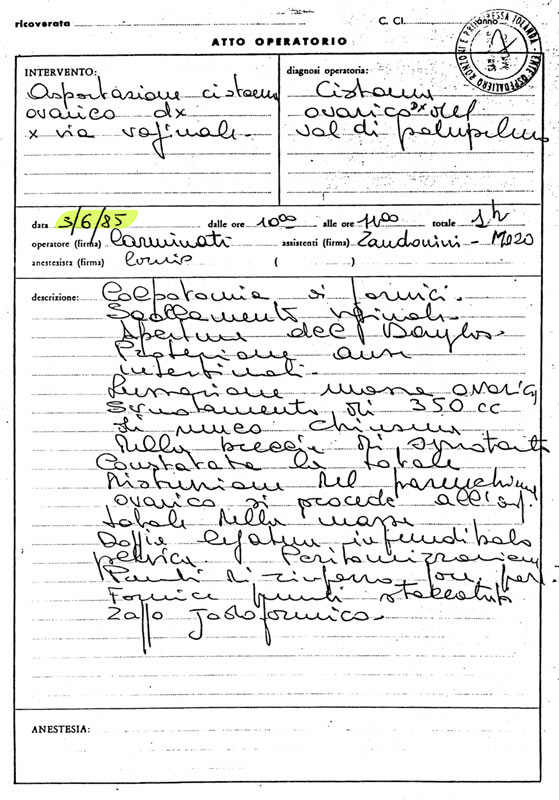 ricoverata C. Cl. anno
ATTO OPERATORIO
INTERVENTO:
Asportazione cistoma
ovarico dx
x via vaginale.
diagnosi operatoria:
Cistoma
ovarico dx del
vol di pompelmo
data 3/6/85 dalle ore 10oo alle ore 11oo totale 1h
operatore (firma) Carminati assistenti (firma) Zandonini -
anestesista (firma) ( )
descrizione: Colpotomia di fornici.
Scollamento vaginale.
Apertura del Douglas.
Protezione anse
intestinali.
Lussazione massa ovarica
Svuotamento di 350 cc
di muco Chiusura
della breccia di svuotamento
Constatata la totale
distruzione del parenchima
ovarico si procede all'asp.
totale della massa
Doppie legature infundibolo
pelvica Peritoneizzazione
Punti di rinforzo
Fornice punti staccati
Zaffo Jodoformico.
ANESTESIA: